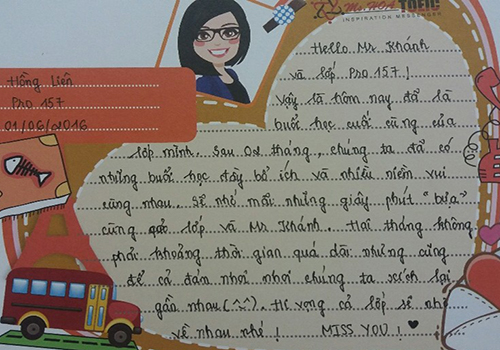 Ms HOA TOEIC
INSPIRATION MESSENGER
Hồng Liên
Pro 157
01/06/2016
Hello Ms. Khánh
và lớp Pro 157!
Vậy là hôm nay đã là
buổi học cuối cùng của
lớp mình sau 02 tháng, chúng ta đã có
những buổi học đầy bổ ích và nhiều niềm vui
cùng nhau. Sẽ nhớ mãi những giây phút "bựa"
cùng lớp và Ms Khánh. Hai tháng không
phải khoảng thời gian quá dài nhưng cũng
để cả đám nhơi nhơi chúng ta xích lại
gần nhau (^.^). Hi vọng cả lớp sẽ nhớ
về nhau nhé! MISS YOU!